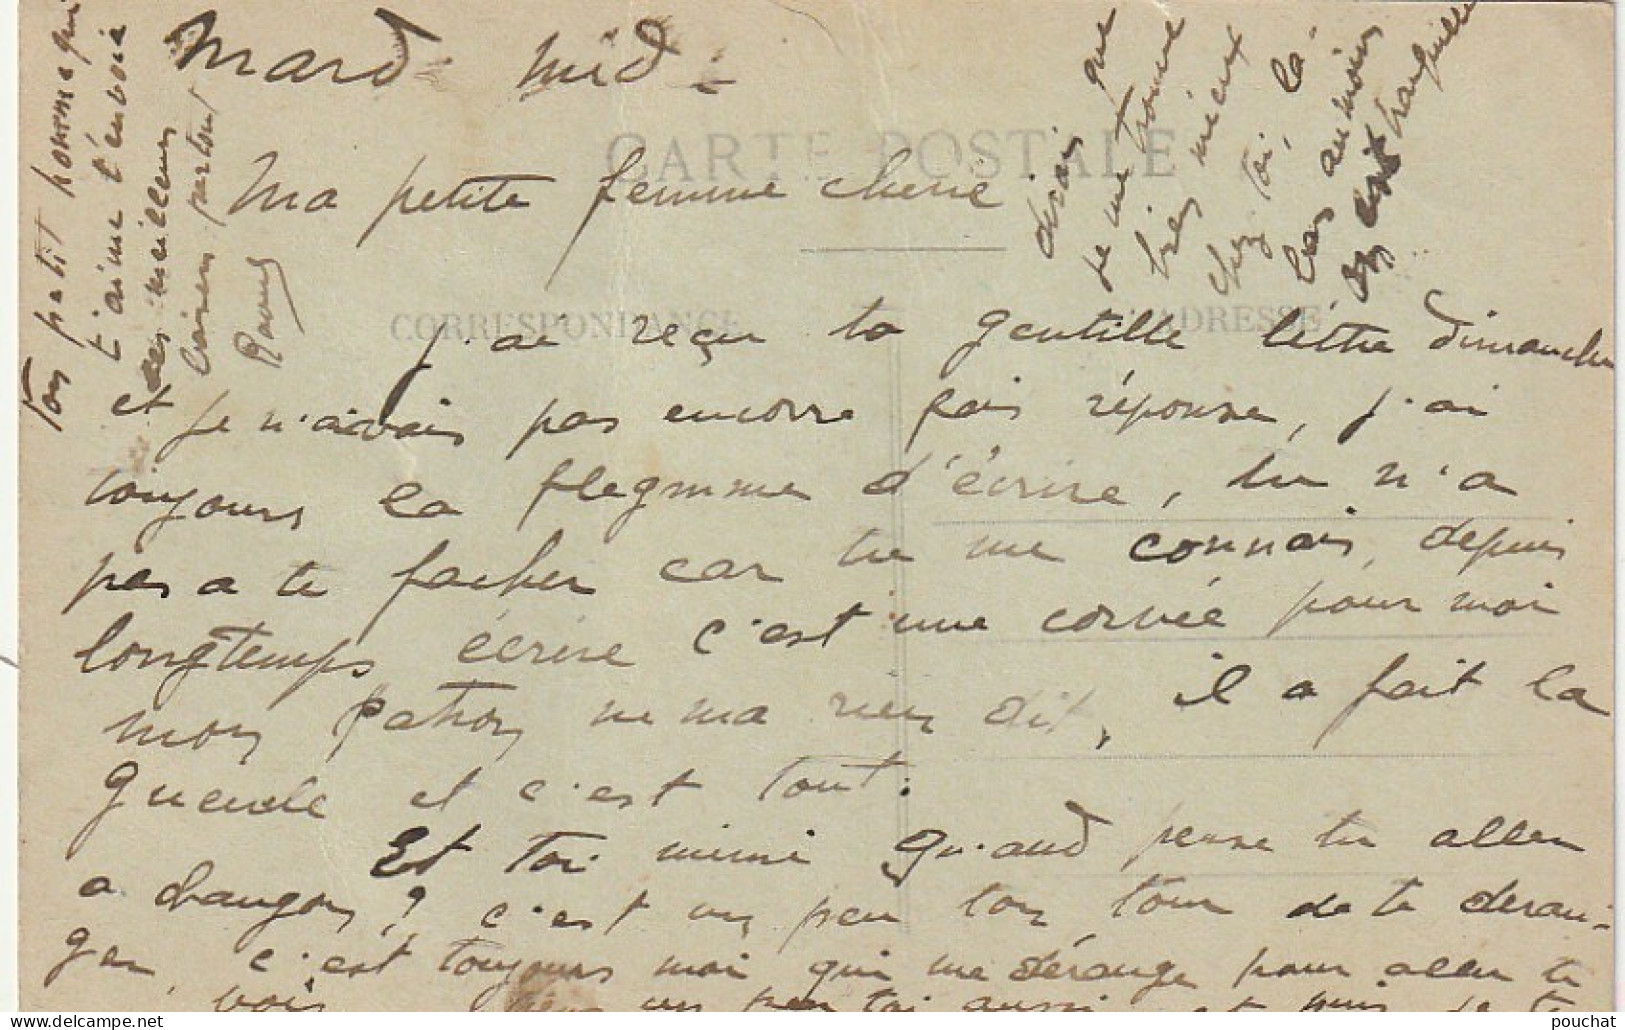 Mard- mid-
CARTE POSTALE
Ma petite femme cherie
CORRESPONDANCE
ADRESSE
j'ai reçu ta gentille lettre dimanche
et je n'avais pas encorre fais réponse, j'ai
toujours la flegmme d'écrire, tu n'a
pas a te facher car tu me connais, depuis
longtemps écrire c'est une corvée pour moi
mon patron ne ma rien dit, il a fait la
gueule et c'est tout.
Et toi mimi quand pense tu allen
a Changons? c'est un peu ton tour de te deran-
ger, c'est toujours moi qui me dérange pour allen te
vois un peu toi aussi et puis je te
dirais que
je me trouve
bien mieux
chez toi, la-
bas au moins
on est tranquille
Ton petit homme qui
t'aime t'envoie
ses meilleurs
baisers partout
pouchat